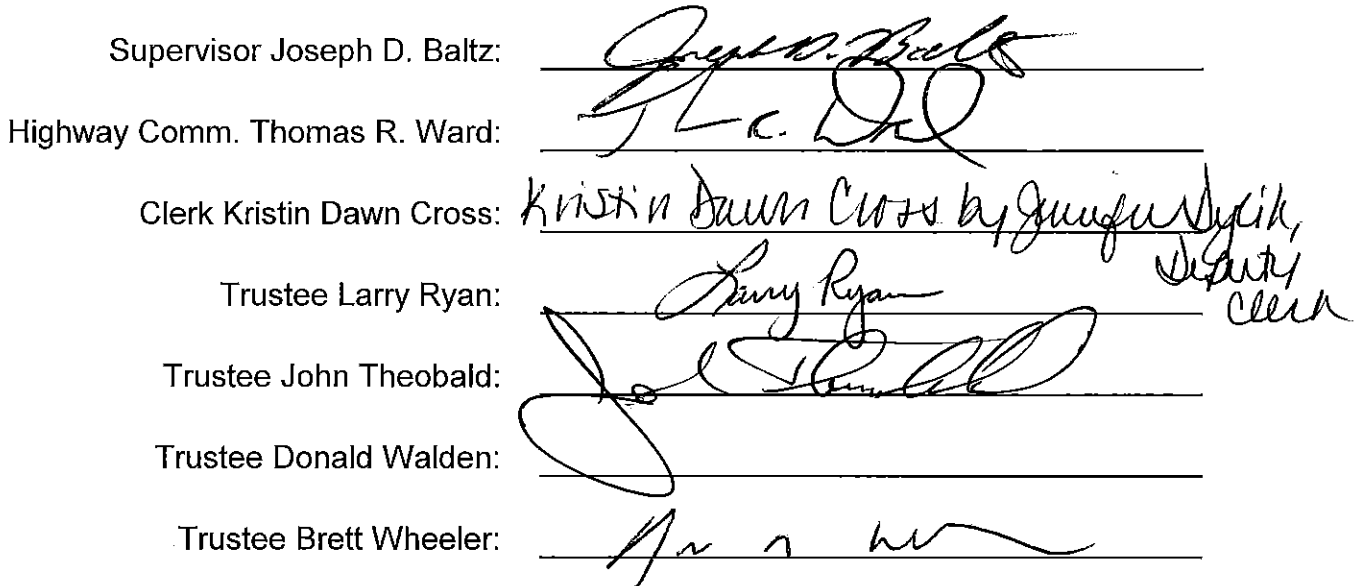 Supervisor Joseph D. Baltz: Joseph D. Baltz
Highway Comm. Thomas R. Ward:
Clerk Kristin Dawn Cross: Kristin Dawn Cross by Jennifer
Deputy
Clerk
Trustee Larry Ryan: Larry Ryan
Trustee John Theobald: John Theobald
Trustee Donald Walden:
Trustee Brett Wheeler: